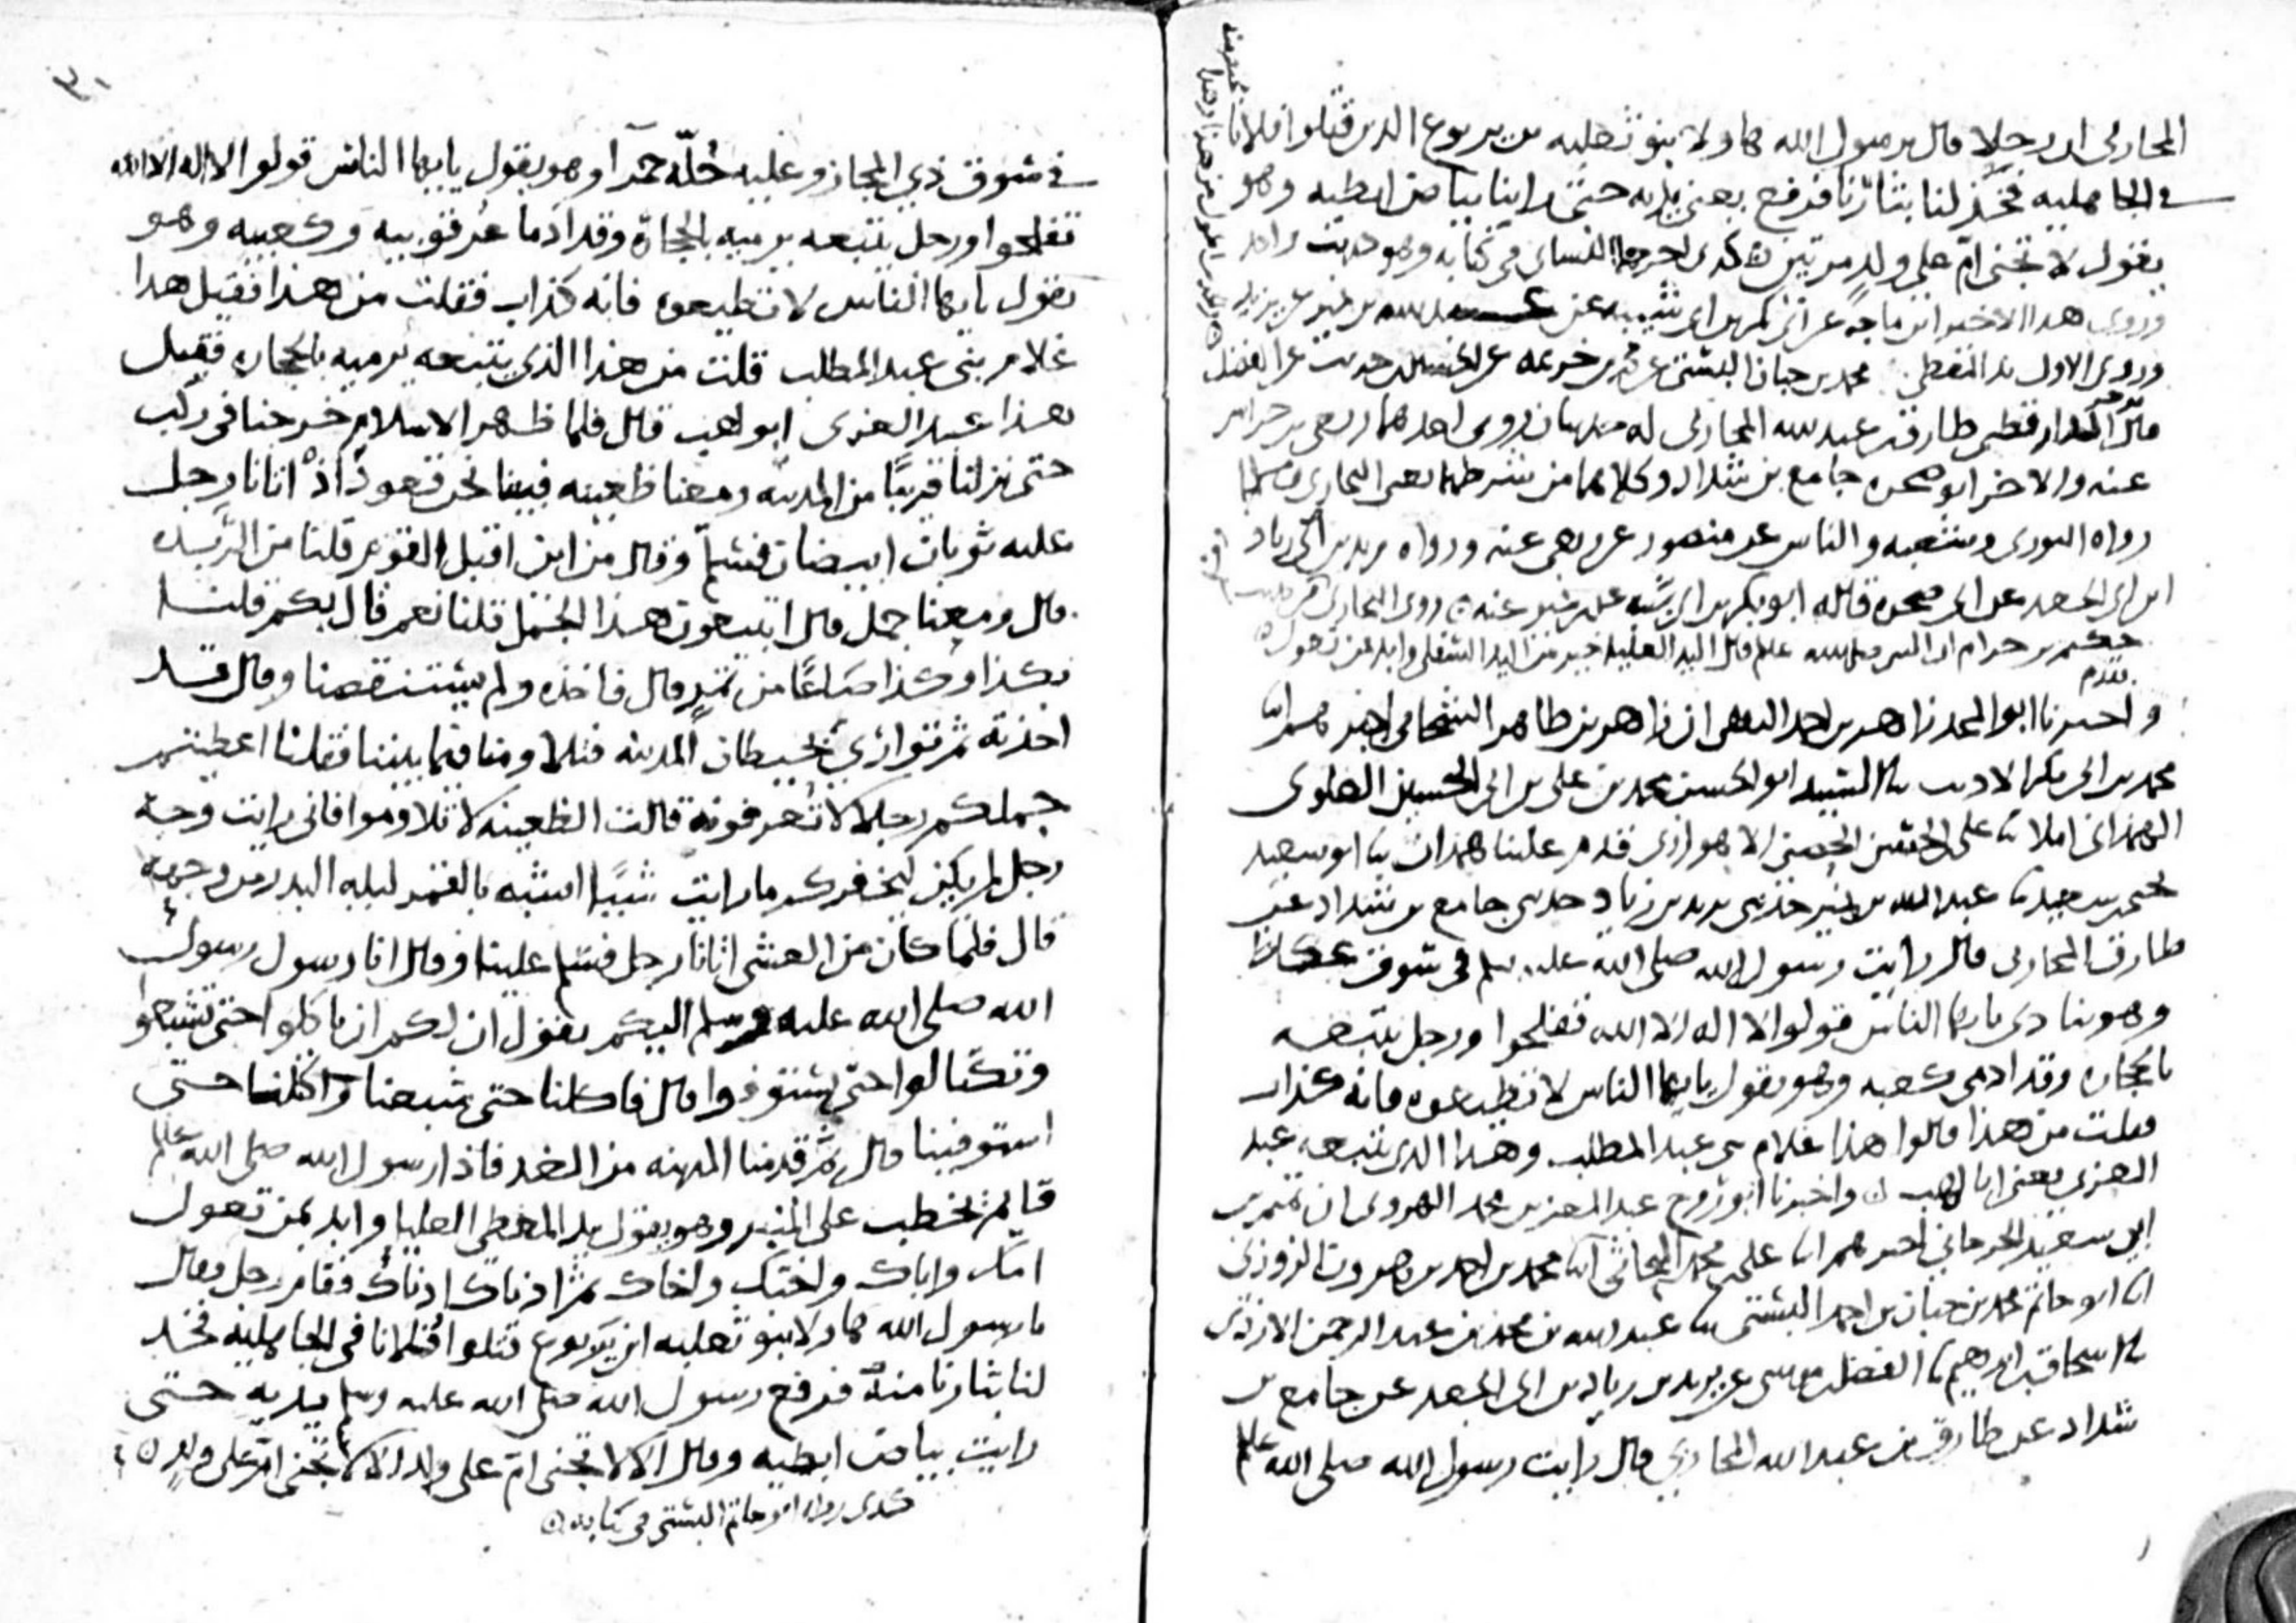 المحاربي ان رجلا قال يرسول الله هاولا بنو ثعلبه بن يربوع الذين قتلوا فلانا
في الجاهليه فخذ لنا بثارنا فرفع يعني يديه حتى راينا بياض ابطيه وهو
يقول لا تجني ام على ولد مرتين كذى اخرجه النساي في كتابه وهو حديث واحد
وروى هذا الاخير ابن ماجه عن ابي بكر بن ابي شيبه عن عبد الله بن نمير عن يزيد
وروى الاول محمد بن حبان البستي عن محمد بن خزيمه عن الحسين بن حريث عن الفضل
قال الدارقطني طارق بن عبد الله المحاربي له حديثان روى احدهما ربعي بن حراش
عنه والاخر ابو صخره جامع بن شداد وكلاهما من شرطهما يعني البخاري ومسلما
رواه الثوري وشعبه والناس عن منصور عن ربعي عنه ورواه يزيد بن ابي زياد
ابن ابي الجعد عن ابي صخره قاله ابو بكر بن ابي شيبه عن ابن نمير عنه روى البخاري من حديث
حكيم بن حزام ان النبي صلى الله عليه وسلم قال اليد العليا خير من اليد السفلى وابدا بمن تعول
تقدم
واخبرنا ابو المجد زاهر بن احمد الثقفي ان زاهر بن طاهر الشحامي اخبرهم ابنا
محمد بن ابي بكر الاديب السيد ابو الحسن محمد بن علي بن ابي الحسين العلوي
الهمذاني املا علي الاهوازي قدم علينا همذان ابو سعيد
يحيى بن سعيد عبد الله بن نمير حدثني يزيد بن زياد حدثني جامع بن شداد عن
طارق المحاربي قال رايت رسول الله صلى الله عليه وسلم في سوق عكاظ
وهو ينادي يا ايها الناس قولوا لا اله الا الله تفلحوا ورجل يتبعه
بالحجاره وقد ادمى كعبه وهو يقول يا ايها الناس لا تطيعوه فانه كذاب
فقلت من هذا قالوا هذا غلام بني عبد المطلب وهذا الذي يتبعه عبد
العزى يعني ابا لهب واخبرنا ابو روح عبد المعز بن محمد الهروي ان تميم بن
ابي سعيد الجرجاني اخبرهم ابنا علي بن محمد البحاثي ابنا محمد بن احمد بن هرون الزوزني
ابنا ابو حاتم محمد بن حبان بن احمد البستي عبد الله بن محمد بن عبد الرحمن الازدي
اسحاق بن ابرهيم الفضل بن موسى عن يزيد بن زياد بن ابي الجعد عن جامع بن
شداد عن طارق بن عبد الله المحاربي قال رايت رسول الله صلى الله عليه وسلم
في سوق ذي المجاز وعليه حُلّه حمرآ وهو يقول يا ايها الناس قولوا لا اله الا الله
تفلحوا ورجل يتبعه يرميه بالحجارة وقد ادما عرقوبيه وكعبيه وهو
يقول يا ايها الناس لا تطيعوه فانه كذاب فقلت من هذا فقيل هذا
غلام بني عبد المطلب قلت من هذا الذي يتبعه يرميه بالحجاره فقيل
هذا عبد العزى ابو لهب قال فلما ظهر الاسلام خرجنا في ركب
حتى نزلنا قريبًا من المدينه ومعنا ظعينه فبينا نحن قعود اذ اتانا رجل
عليه ثوبان ابيضان فسلم وقال من اين اقبل القوم قلنا من الربذه
قال ومعنا جمل قال اتبيعون هذا الجمل قلنا نعم قال بكم قلنا
بكذا وكذا صاعًا من تمر قال فاخذه ولم يستنقصنا وقال قد
اخذته ثم توارى بحيطان المدينه فتلاومنا فيما بيننا فقلنا اعطيتم
جملكم رجلا لا تعرفونه قالت الظعينه لا تلاوموا فاني رايت وجه
رجل لم يكن ليخفركم ما رايت شيًا اشبه بالقمر ليله البدر من وجهه
قال فلما كان من العشي اتانا رجل فسلم علينا وقال انا رسول رسول
الله صلى الله عليه وسلم اليكم يقول ان لكم ان تاكلوا حتى تشبعوا
وتكتالوا حتى تستوفوا قال فاكلنا حتى شبعنا واكتلنا حتى
استوفينا قال ثم قدمنا المدينه من الغد فاذا رسول الله صلى الله عليه وسلم
قايم يخطب على المنبر وهو يقول يد المعطي العليا وابدا بمن تعول
امك واباك واختك واخاك ثم ادناك ادناك فقام رجل فقال
يا رسول الله هاولا بنو ثعلبه ابن يربوع قتلوا فلانا في الجاهليه فخذ
لنا بثارنا منه فرفع رسول الله صلى الله عليه وسلم يديه حتى
رايت بياض ابطيه وقال الا لا تجني ام على ولد الا لا تجني ام على ولد
كذى رواه ابو حاتم البستي في كتابه